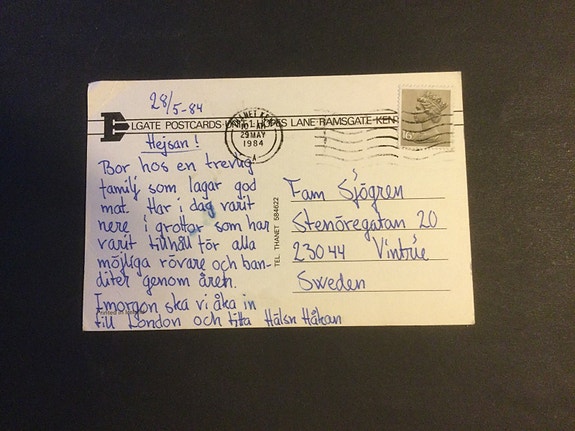 28/5-84
ELGATE POSTCARDS UNIT 1, HOPES LANE RAMSGATE KENT
THANET KENT
29 MAY
1984
A
16
Hejsan!
Bor hos en trevlig
familj som lagar god
mat. Har i dag varit
nere i grottor som har
varit tillhåll för alla
möjliga rövare och ban-
diter genom åren.
Imorgon ska vi åka in
till London och titta Hälsn Håkan
Printed in
TEL THANET 584622
Fam Sjögren
Stenöregatan 20
23044 Vintrie
Sweden